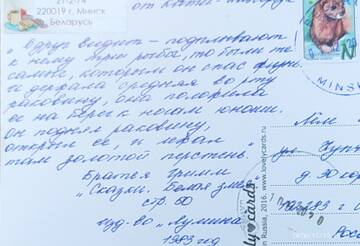 220019 г. Минск
Беларусь
"Вдруг видит - подплывают
к нему три рыбы, то были те
самые, которым он спас жизнь.
И держала средняя во рту
раковину, она положила
ее на берег к ногам юноши.
Он поднял раковину,
открыл ее, и
там золотой перстень.
Братья Гримм
"Сказки. Белая змея"
стр. 50
изд-во "Лумина"
1983 год
N
MINSK
in Russia, 2016. www.lovelycards.ru
ly cards
ул.
д. 30